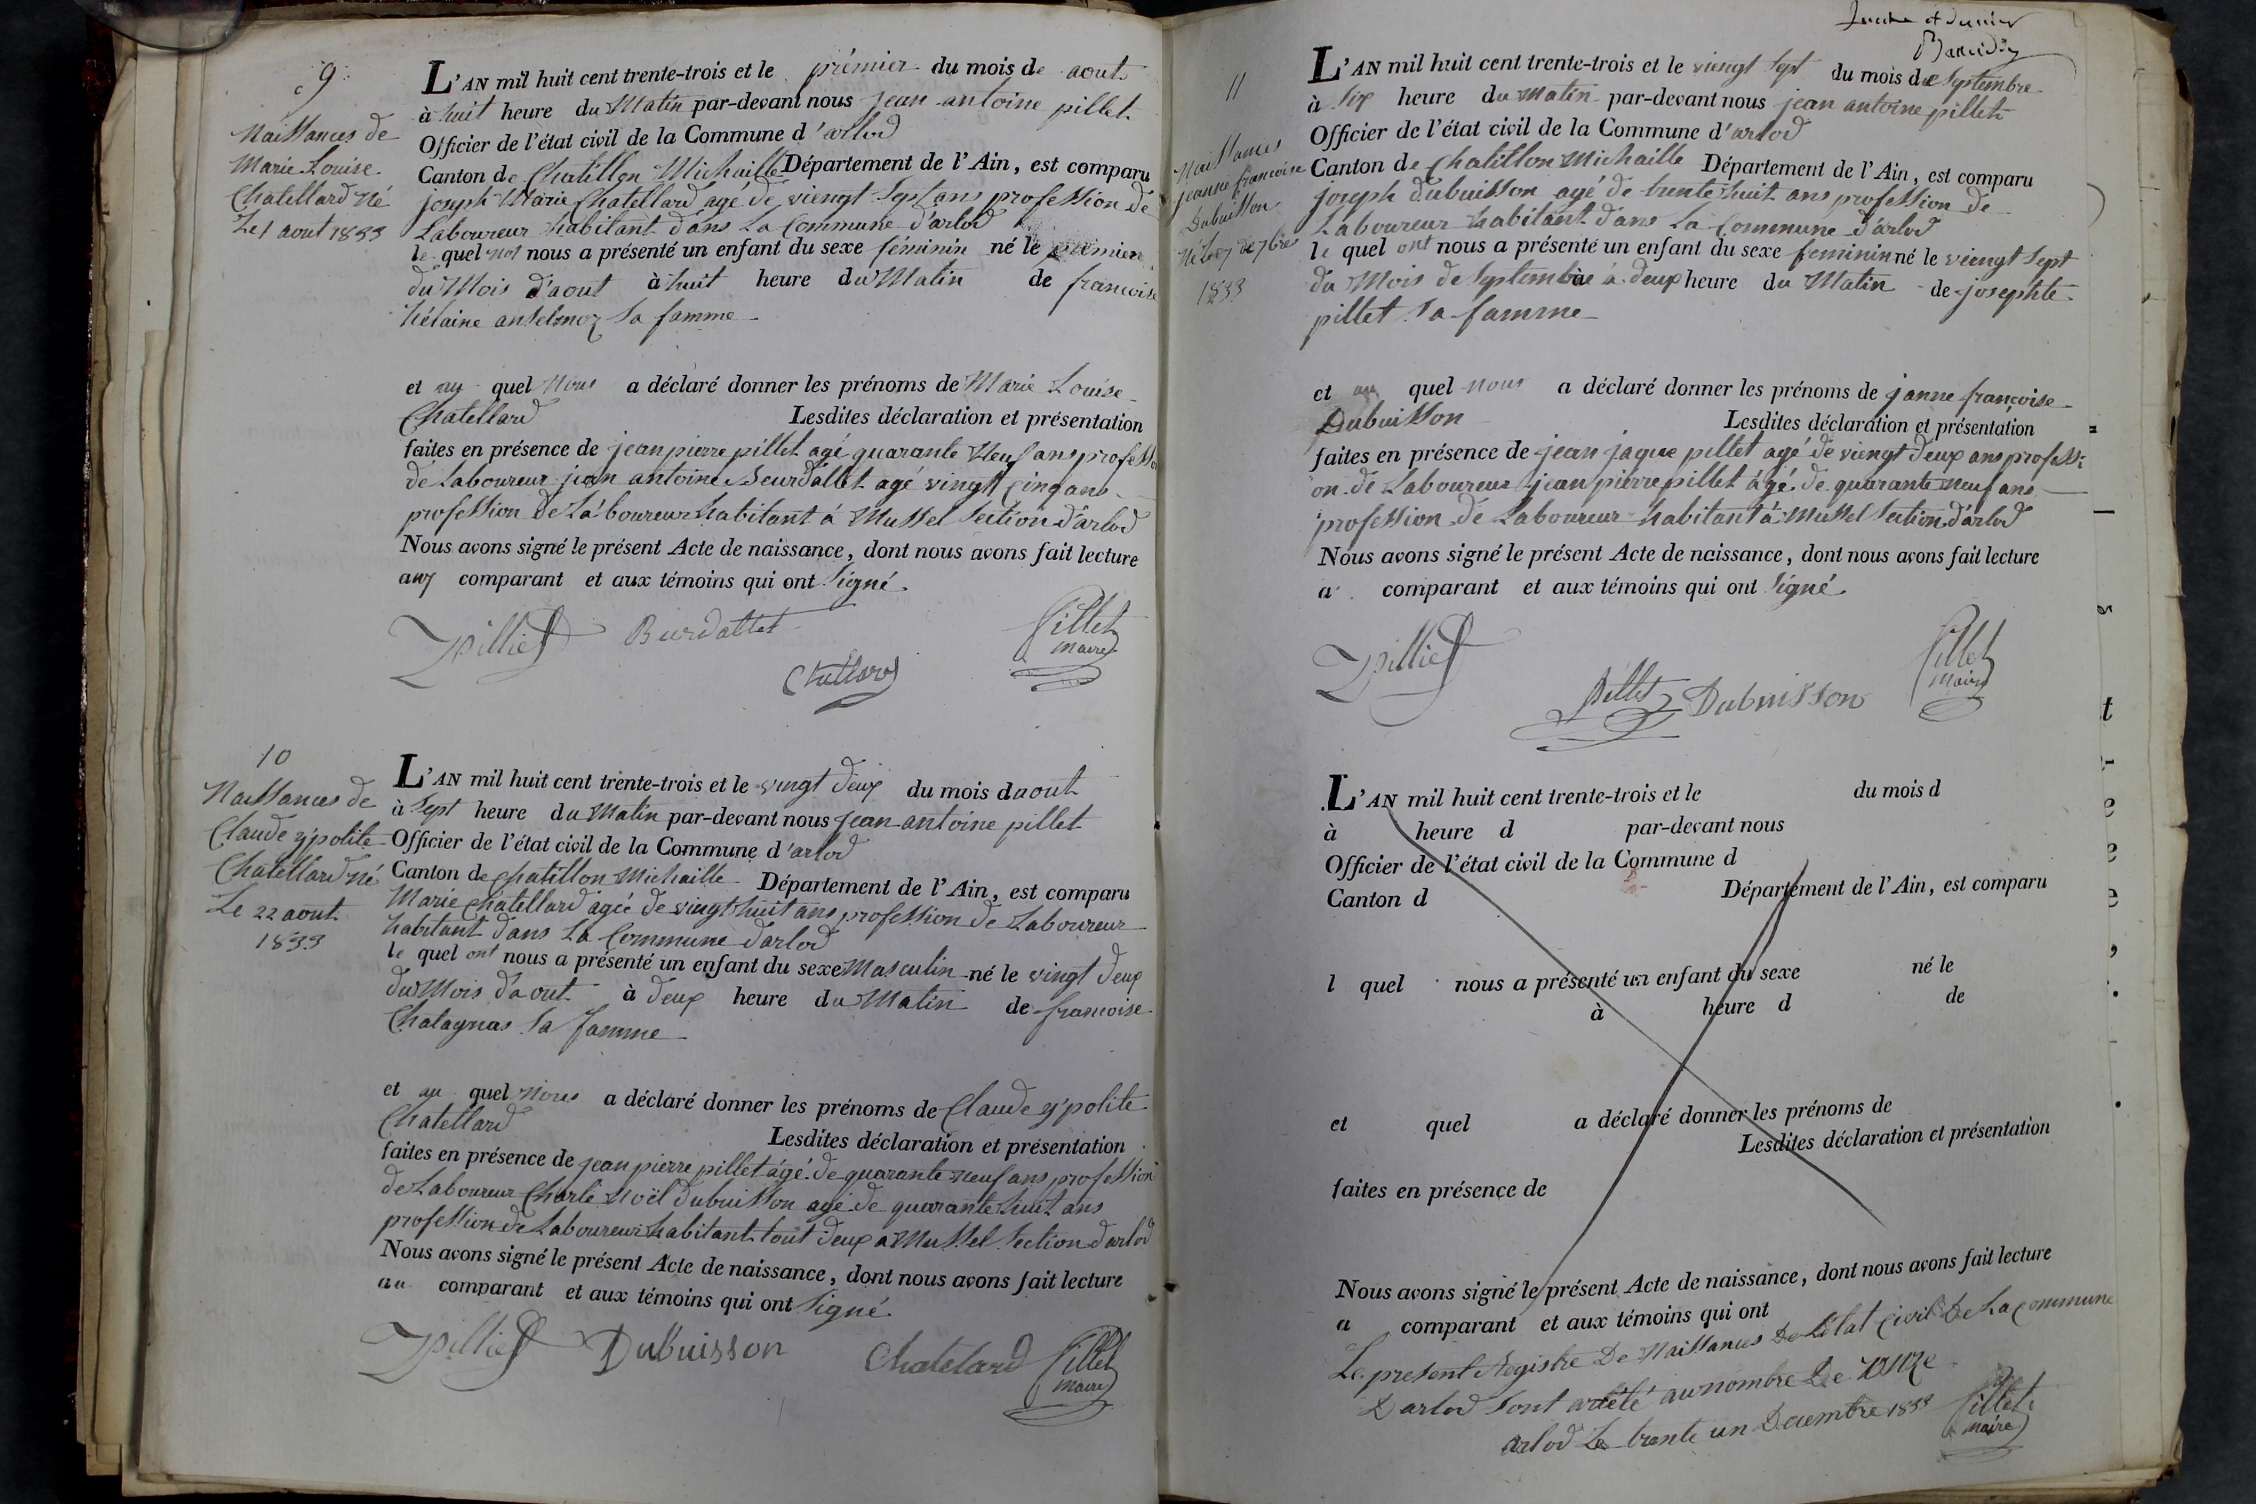 9
Naissances de
Marie Louise
Chatellard né
Le 1 aout 1833
L'AN mil huit cent trente-trois et le prémier du mois de aout
à huit heure du Matin par-devant nous jean antoine pillet
Officier de l'état civil de la Commune d'arlod
Canton de Chatillon Michaille Département de l'Ain, est comparu
joseph Marie Chatellard agé de viengt Sept ans profession de
Laboureur habitant dans La Commune d'arlod
le quel nous a présenté un enfant du sexe féminin né le premier
du Mois d'aout à huit heure du Matin de francoise
hélaine anselmoz Sa famme
et au quel Nous a déclaré donner les prénoms de Marie Louise
Chatellard Lesdites déclaration et présentation
faites en présence de jean pierre pillet agé quarante Neuf ans professi
de Laboureur jean antoine Beurdallet agé vingt cinq ans
profession de Laboureur habitant á Mussel Section d'arlod
Nous avons signé le présent Acte de naissance, dont nous avons fait lecture
aux comparant et aux témoins qui ont Signé
Pillet Burdallet Pillet
maire
Chatelard
10
Naissances de
Claude ypolite
Chatellard né
Le 22 aout
1833
L'AN mil huit cent trente-trois et le vingt deux du mois d aout
à Sept heure du Matin par-devant nous jean antoine pillet
Officier de l'état civil de la Commune d'arlod
Canton de Chatillon Michaille Département de l'Ain, est comparu
Marie Chatellard agée de vingt huit ans profession de Laboureur
habitant dans La Commune d'arlod
le quel ont nous a présenté un enfant du sexe Masculin né le vingt deux
du Mois d'aout à deux heure du Matin de francoise
Chatagnas Sa famme
et au quel Nous a déclaré donner les prénoms de Claude ypolite
Chatellard Lesdites déclaration et présentation
faites en présence de jean pierre pillet ágé de quarante neuf ans profession
de Laboureur Charle Noël dubuisson agé de quarante huit ans
profession de Laboureur habitant tout deux a Mussel Section d'arlod
Nous avons signé le présent Acte de naissance, dont nous avons fait lecture
au comparant et aux témoins qui ont Signé
Pillet Dubuisson Chatelard Pillet
maire
et dernier
11
Naissances
jeanne francoise
Dubuisson
Né Le 27 de 7bre
1833
L'AN mil huit cent trente-trois et le viengt Sept du mois de Septembre
à Six heure du Matin par-devant nous jean antoine pillet
Officier de l'état civil de la Commune d'arlod
Canton de Chatillon Michaille Département de l'Ain, est comparu
joseph dubuisson agé de trente huit ans profession de
Laboureur habitant dans La Commune d'arlod
le quel ont nous a présenté un enfant du sexe feminin né le viengt Sept
du Mois de Septembre à deux heure du Matin de josephte
pillet Sa famme
et au quel nous a déclaré donner les prénoms de janne françoise
Dubuisson Lesdites déclaration et présentation
faites en présence de jean jaque pillet agé de viengt deux ans professi
on de Laboureur jean pierre pillet ágé de quarante neuf ans
profession de Laboureur habitant á Mussel Section d'arlod
Nous avons signé le présent Acte de naissance, dont nous avons fait lecture
a comparant et aux témoins qui ont Signé
Pillet Pillet Dubuisson Pillet
maire
L'AN mil huit cent trente-trois et le du mois d
à heure d par-devant nous
Officier de l'état civil de la Commune d
Canton d Département de l'Ain, est comparu
l quel nous a présenté un enfant du sexe né le
à heure d de
et quel a déclaré donner les prénoms de
Lesdites déclaration et présentation
faites en présence de
Nous avons signé le présent Acte de naissance, dont nous avons fait lecture
a comparant et aux témoins qui ont
Le present Registre De Naissances De L'état Civil De La Commune
D'arlod Sont arrêté au nombre De onze
arlod Le trente un Decembre 1833 Pillet
maire